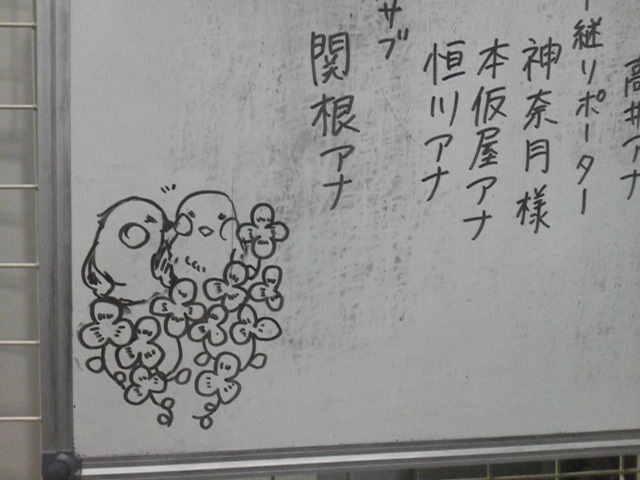 高井アナ
継リポーター
神奈月様
本仮屋アナ
恒川アナ
サブ
関根アナ